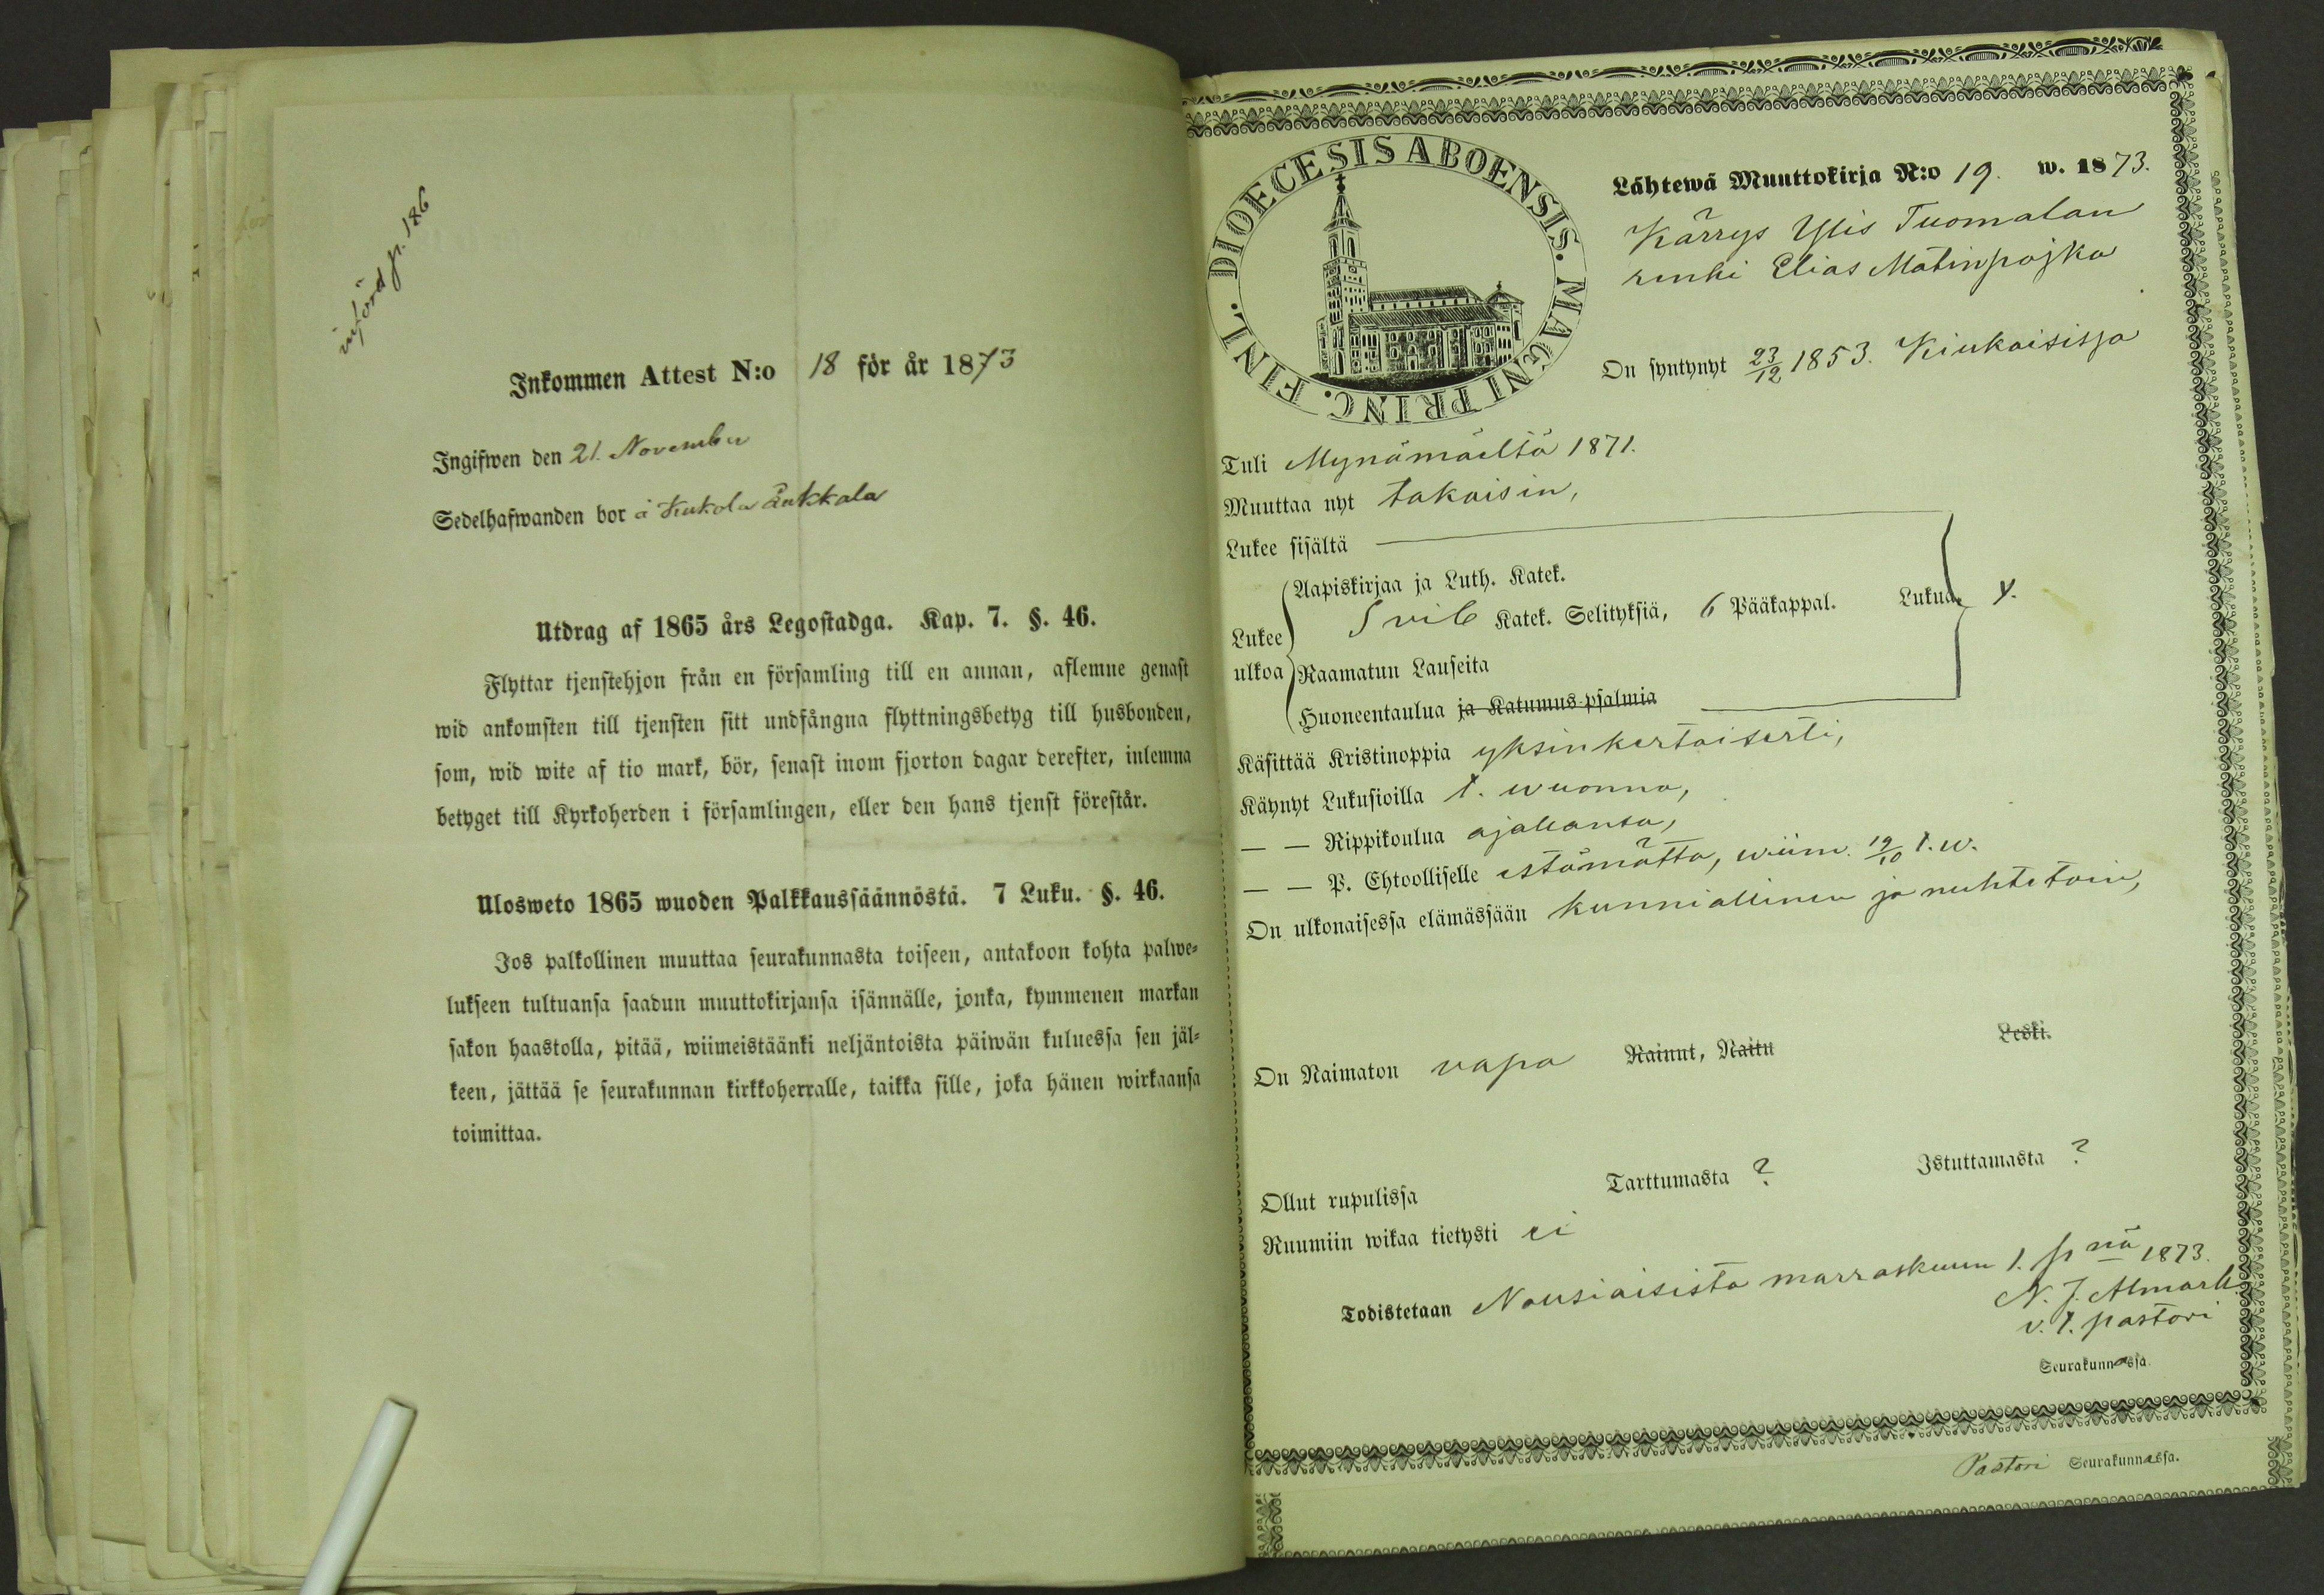 införd p. 186
Inkommen Attest N:o 18 för år 1873
Ingifwen den 21. November
Sedelhafwanden bor å Kukola Änkkala
Utdrag af 1865 års Legostadga. Kap. 7. §. 46.
Flyttar tjenstehjon från en församling till en annan, aflemne genast
wid ankomsten till tjensten sitt undfångna flyttningsbetyg till husbonden,
som, wid wite af tio mark, bör, senast inom fjorton dagar derefter, inlemna
betyget till Kyrkoherden i församlingen, eller den hans tjenst förestår.
Ulosweto 1865 wuoden Palkkaussäännöstä. 7 Luku. §. 46.
Jos palkollinen muuttaa seurakunnasta toiseen, antakoon kohta palwe-
lukseen tultuansa saadun muuttokirjansa isännälle, jonka, kymmenen markan
sakon haastolla, pitää, wiimeistäänki neljäntoista päiwän kuluessa sen jäl-
keen, jättää se seurakunnan kirkkoherralle, taikka sille, joka hänen wirkaansa
toimittaa.
DIOECESIS ABOENSIS. MAGNI PRINC. FINL.
Lähtewä Muuttokirja N:o 19. w. 1873.
Kärrys Ylis Tuomalan
renki Elias Matinpojka
On syntynyt 23/12 1853. Kiukaisissa
Tuli Mynämäeltä 1871.
Muuttaa nyt takaisin,
Lukee sisältä
Aapiskirjaa ja Luth. Katek.
Lukee Svib Katek. Selityksiä, 6 Pääkappal. Lukua
ulkoa Raamatun Lauseita
Huoneentaulua ja Katumus-psalmia
Käsittää Kristinoppia yksinkertaisesti,
Käynyt Lukusioilla t. wuonna,
— — Rippikoulua ajallansa,
— — P. Ehtoolliselle estämättä, wiim. 19/10 t. w.
On ulkonaisessa elämässään kunniallinen ja nuhtetoin,
On Naimaton vapa Nainut, Naitu Leski.
Ollut rupulissa Tarttumasta ? Istuttamasta ?
Ruumiin wikaa tietysti ei
Todistetaan Nousiaisista marraskuun 1. p nä 1873.
N. J. Almark
v. t. pastori
Seurakunnassa.
Pastori Seurakunnassa.